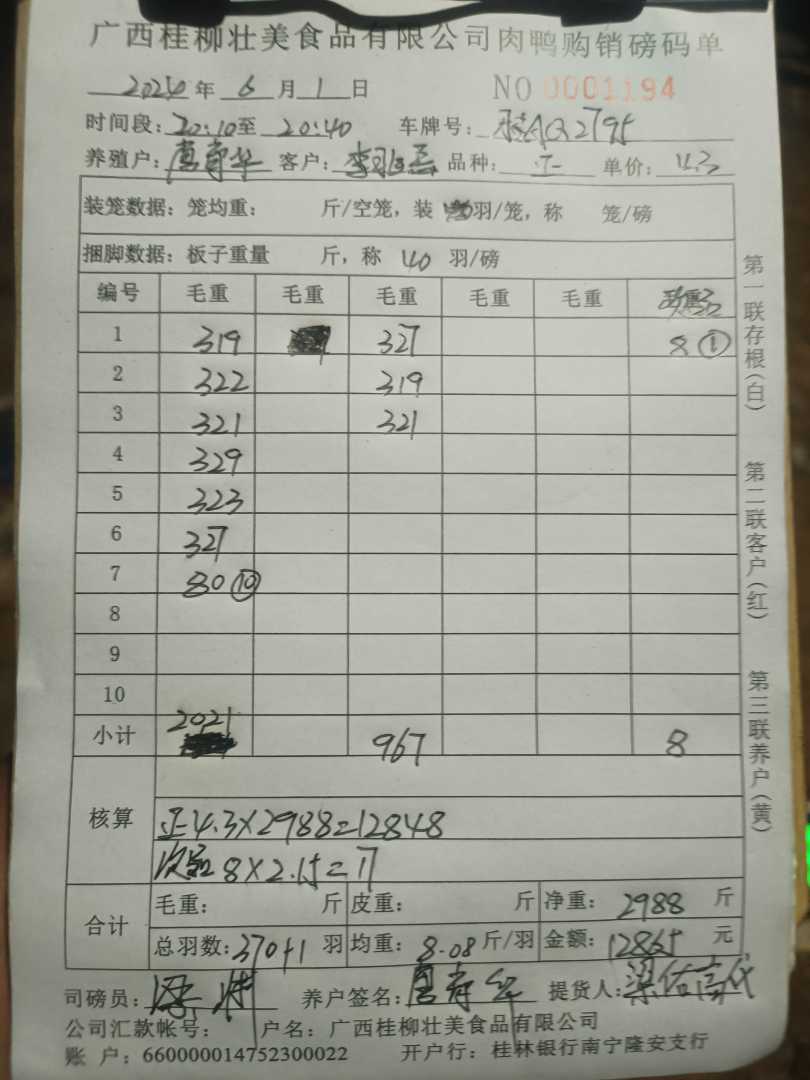 广西桂柳壮美食品有限公司肉鸭购销磅码单
2024年 6月 1日 NO 0001194
时间段: 20:10至 20:40 车牌号: 2795
养殖户: 客户: 品种: 正 单价: 4.3
装笼数据: 笼均重: 斤/空笼, 装 羽/笼, 称 笼/磅
捆脚数据: 板子重量 斤, 称 40 羽/磅
编号 毛重 毛重 毛重 毛重 毛重 次品
1 319 327 8 ①
2 322 319
3 321 321
4 329
5 323
6 327
7 80 ⑩
8
9
10
小计 2021 967 8
核算
正4.3×2988=12848
次品 8×2.15=17
合计
毛重: 斤 皮重: 斤 净重: 2988 斤
总羽数: 370+1 羽 均重: 8.08 斤/羽 金额: 12865 元
司磅员: 养户签名: 提货人:
公司汇款帐号: 户名: 广西桂柳壮美食品有限公司
账 户: 660000014752300022 开户行: 桂林银行南宁隆安支行
第一联存根(白) 第二联客户(红) 第三联养户(黄)